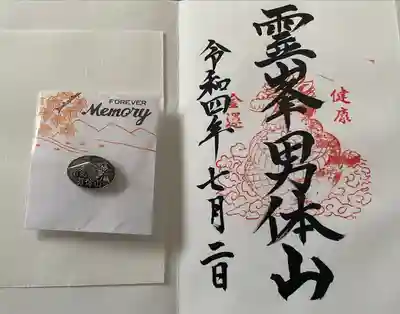 FOREVER
Memory
霊峯男体山
健康
金運
令和四年七月二日